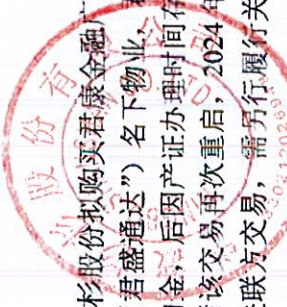 杉股份拟购买君康金融广
君盛通达”）名下物业，
金，后因产证办理时间存
该交易再次重启，2024年
联方交易，需另行履行关
股份有